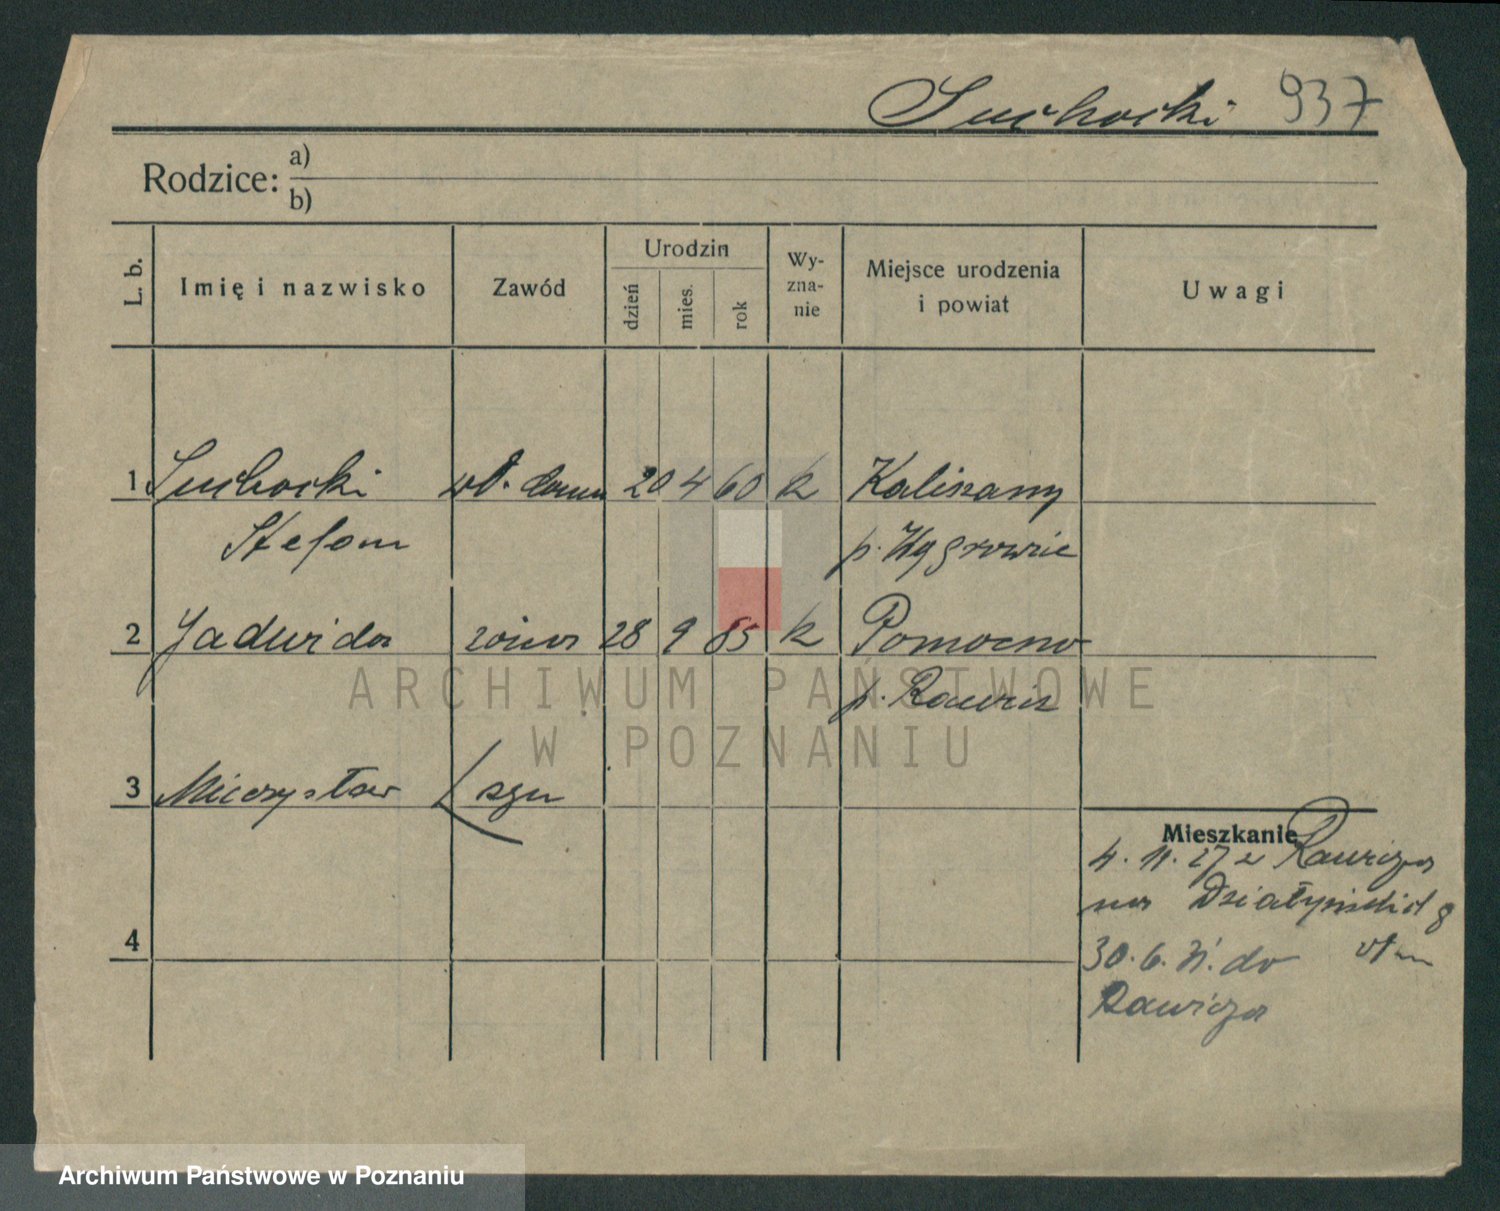 Suchocki 937
Rodzice: a)
b)
L. b. Imię i nazwisko Zawód Urodzin Wy- Miejsce urodzenia Uwagi
dzień mies. rok zna- i powiat
nie
1 Suchocki wł. domu 20 4 60 k Kaliszany
Stefan p. Wągrowiec
2 Jadwida żona 28 9 85 k Pomocno
p. Rawicz
ARCHIWUM PAŃSTWOWE
W POZNANIU
3 Mieczysław syn
Mieszkanie
4. 11. 27 z Rawicza
na Działyńskich 8
4
30. 6. 31. do
Rawicza
Archiwum Państwowe w Poznaniu